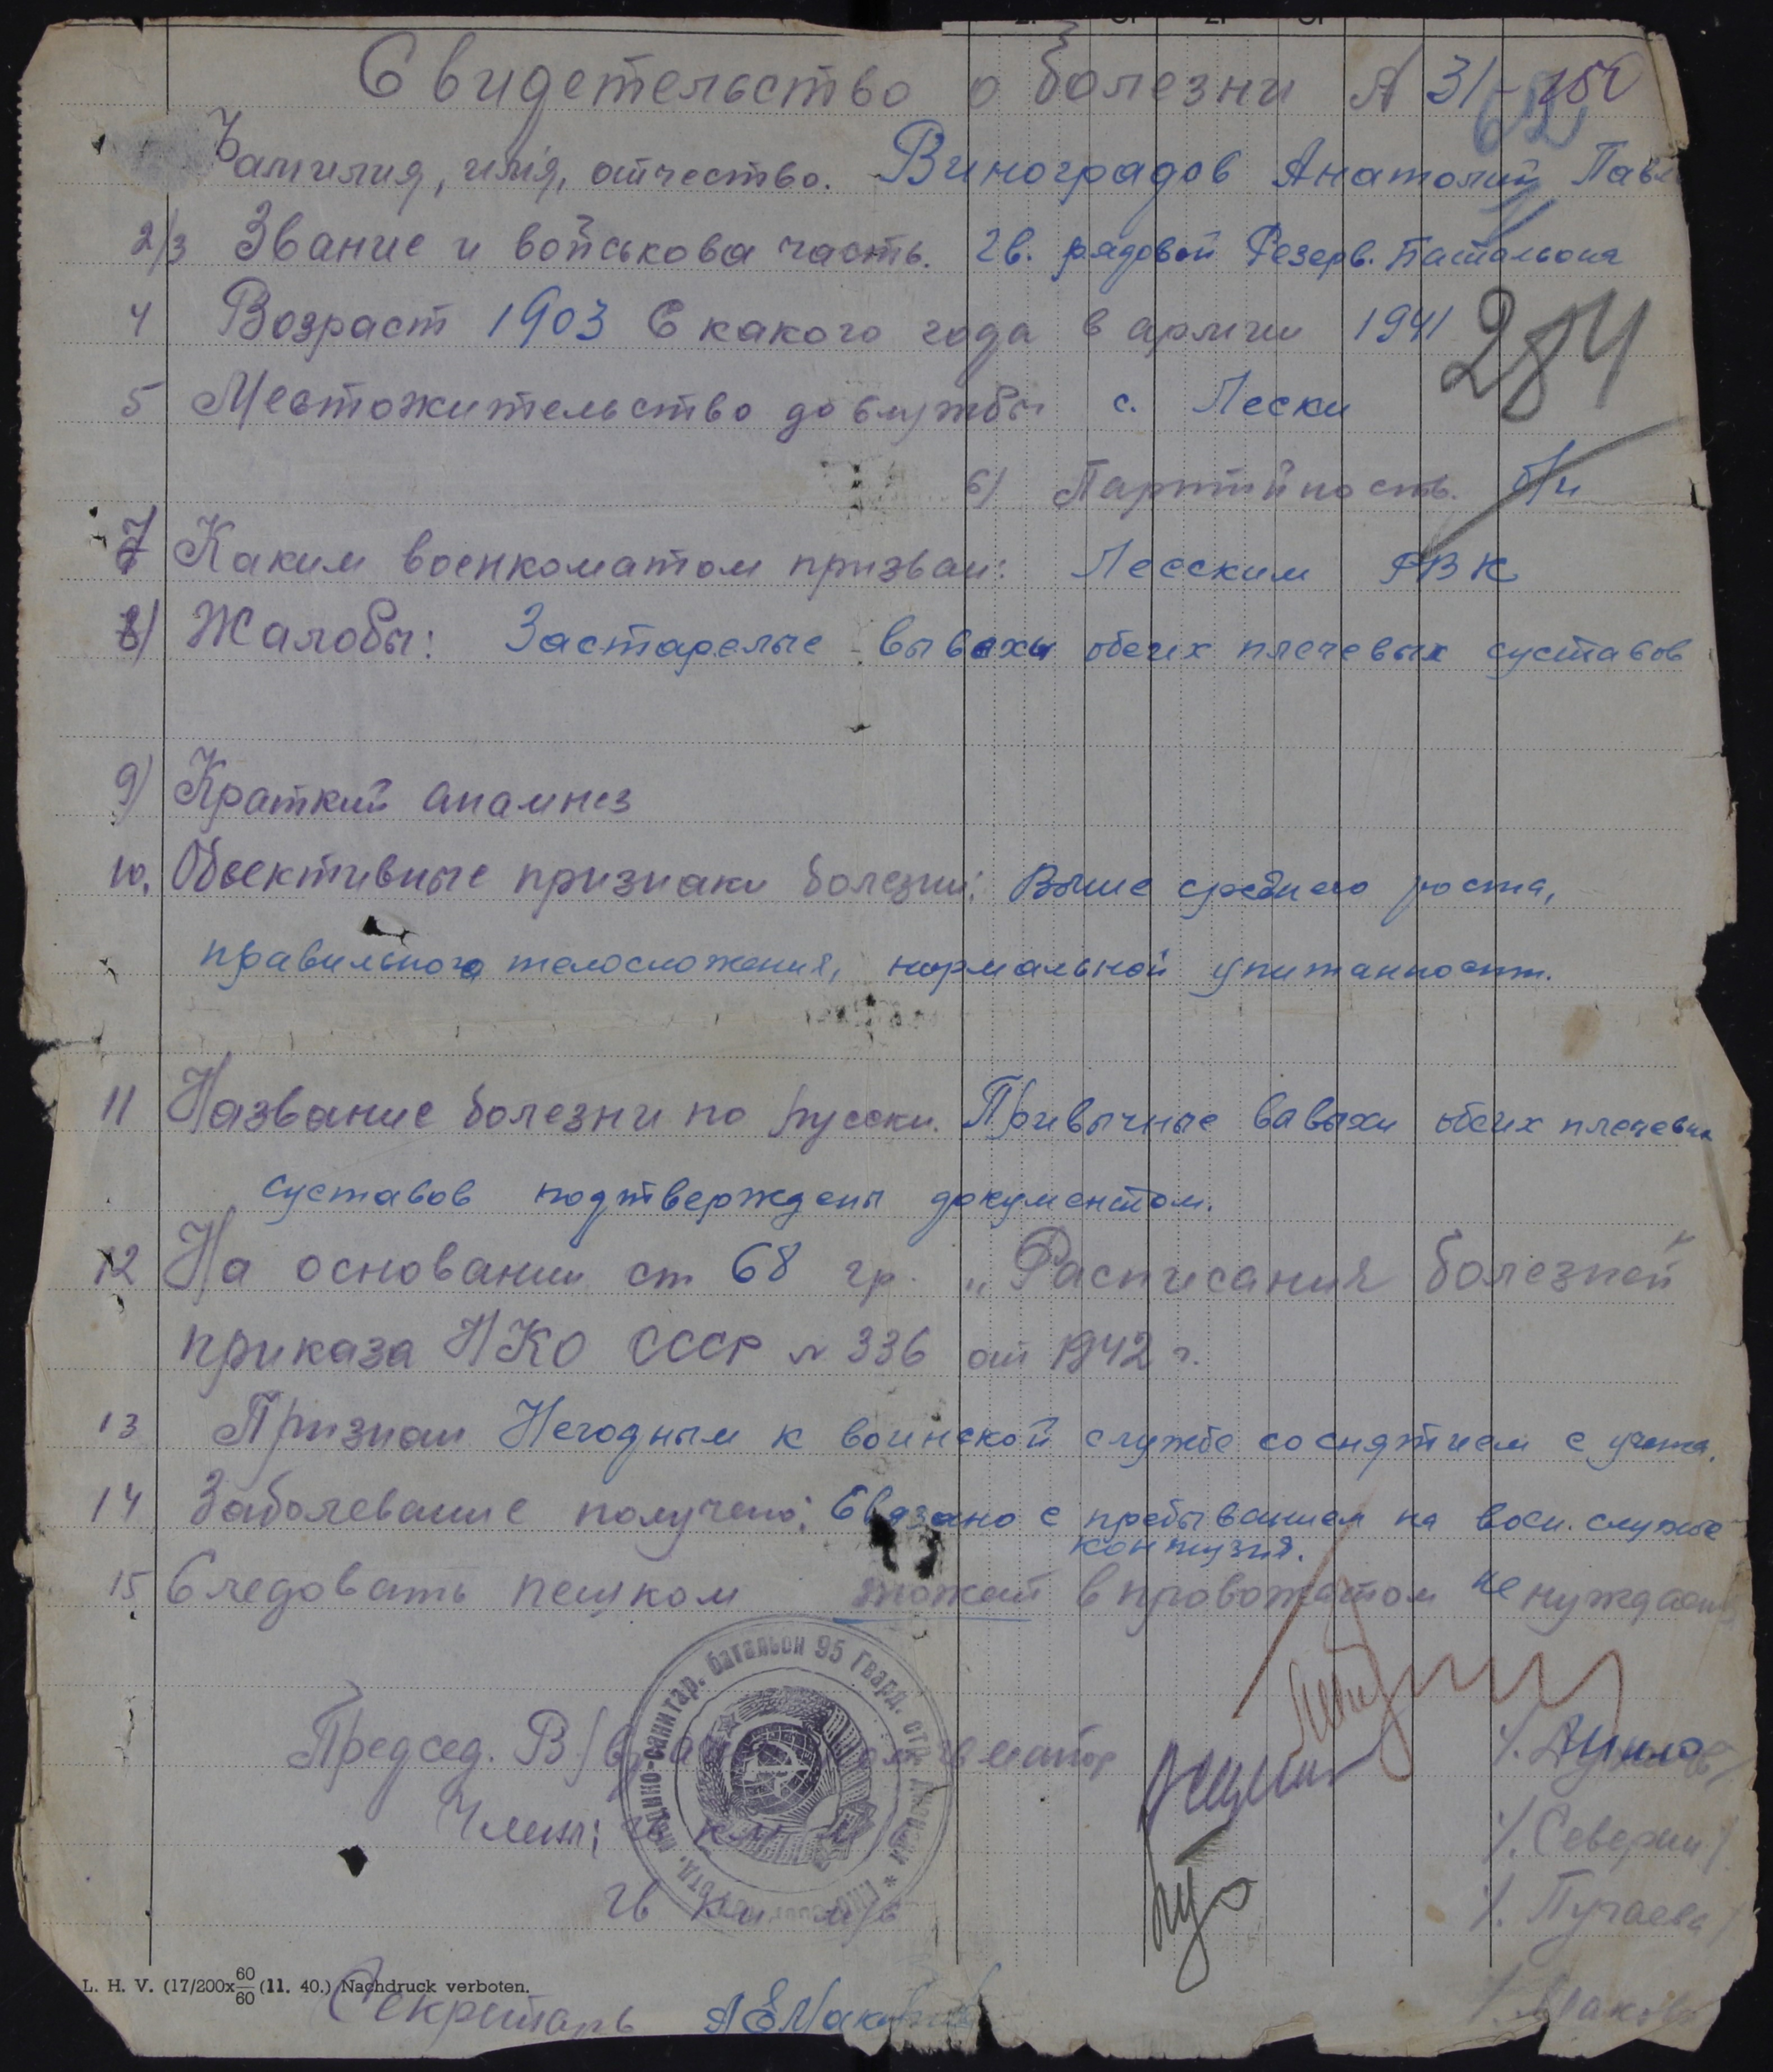 Свидетельство о болезни № 31-150
62
Фамилия, имя, отчество. Виноградов Анатолий Павл
2/3 Звание и войськова часть. Гв. рядовой Резерв. Батальона
4 Возраст 1903 С какого года в армии 1941
284
5 Местожительство до службы с. Пески
6) Партийность. б/п
7 Каким военкоматом призван: Песским РВК
8) Жалобы: Застарелые вывехи обеих плечевых суставов
9) Краткий анамнез
10. Обьективные признаки болезни: Выше среднего роста,
правильного телосложения, нормальной упитанност.
11 Название болезни по русски. Привычные вывыхи обеих плечевых
суставов подтверждены документом.
12 На основании ст 68 гр. „Расписания болезней"
приказа НКО СССР № 336 от 1942 г.
13 Признан Негодным к воинской службе со снятием с учета.
14 Заболевание получено: Связано с пребыванием на воен. службе
контузия.
15 Следовать пешком может в провожатом не нуждается
Председ. В/вр майор
Члены: гв к-н м/с
гв к-н м/с
/. Северин/.
/. Пугаева/
отд. медико-санитар. батальон 95 гвард. стр. дивизии *
L. H. V. (17/200x 60/60 (11. 40.) Nachdruck verboten.
Секретарь